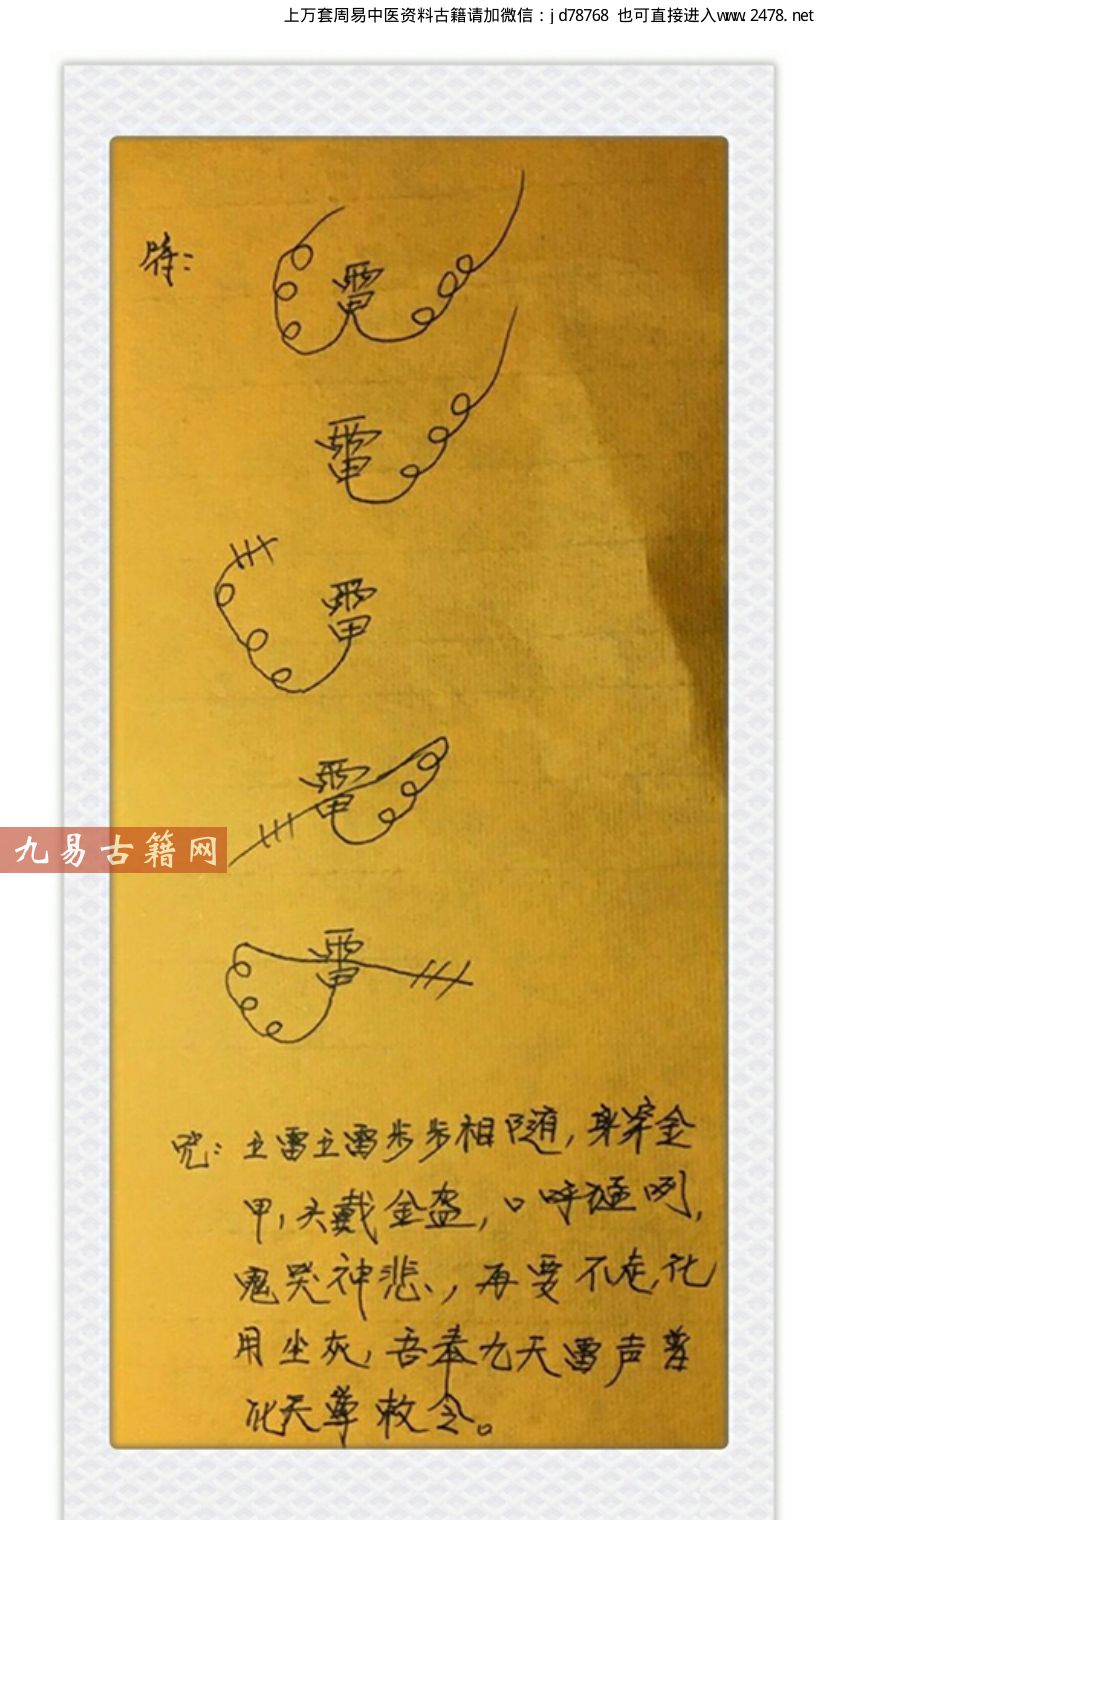 上万套周易中医资料古籍请加微信：jd78768 也可直接进入www.2478.net
符：
雷
雷
雷
雷
九易古籍网
雷
咒：五雷五雷步步相随，身穿金
甲，头戴金盔，口呼 咧，
鬼哭神悲，再要不走，化
用坐灰，吾奉九天雷声普
化天尊敕令。